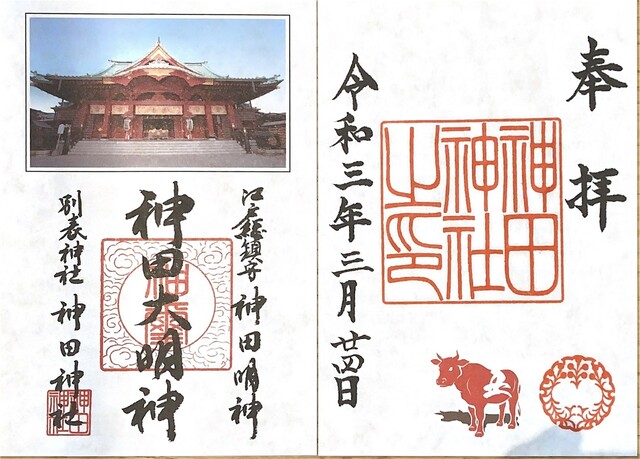 奉拝
神田
神社
之印
令和三年三月廿四日
江戸総鎮守 神田明神
神田大明神
別表神社 神田神社
神田
神社